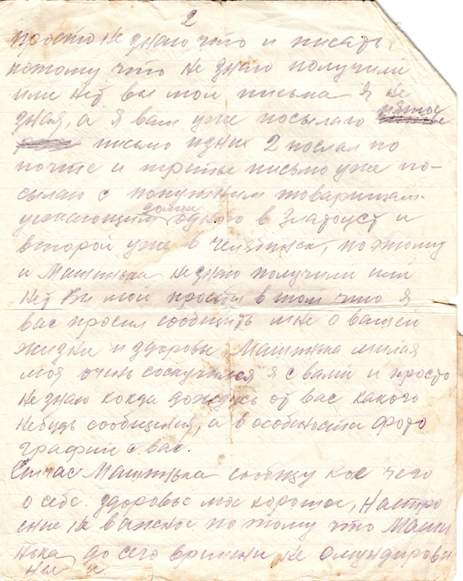 2
просто не знаю что и писать,
потому что не знаю получили
или нет вы мои письма я не
зная, а я вам уже посылаю
письмо из них 2 послал по
почте и третье письмо уже по-
сылаю с попутным товарищам
уезжающим домой одного в Златоуст и
второй уже в Челябинск, поэтому
и Машинька не знаю получили или
нет Вы мои просьбы в том что я
вас просил сообщить мне о вашей
жизни и здоровье, Машинька милая
моя очень соскучился я с вами и просто
не знаю когда дождусь от вас какого
нибудь сообщения, а в особенности фото
графии с вас.
Сичас Машинька сообщу кое чего
о себе. здоровье мое хорошое, настро
ение не важное по тому что Маши
нька до сего времени не